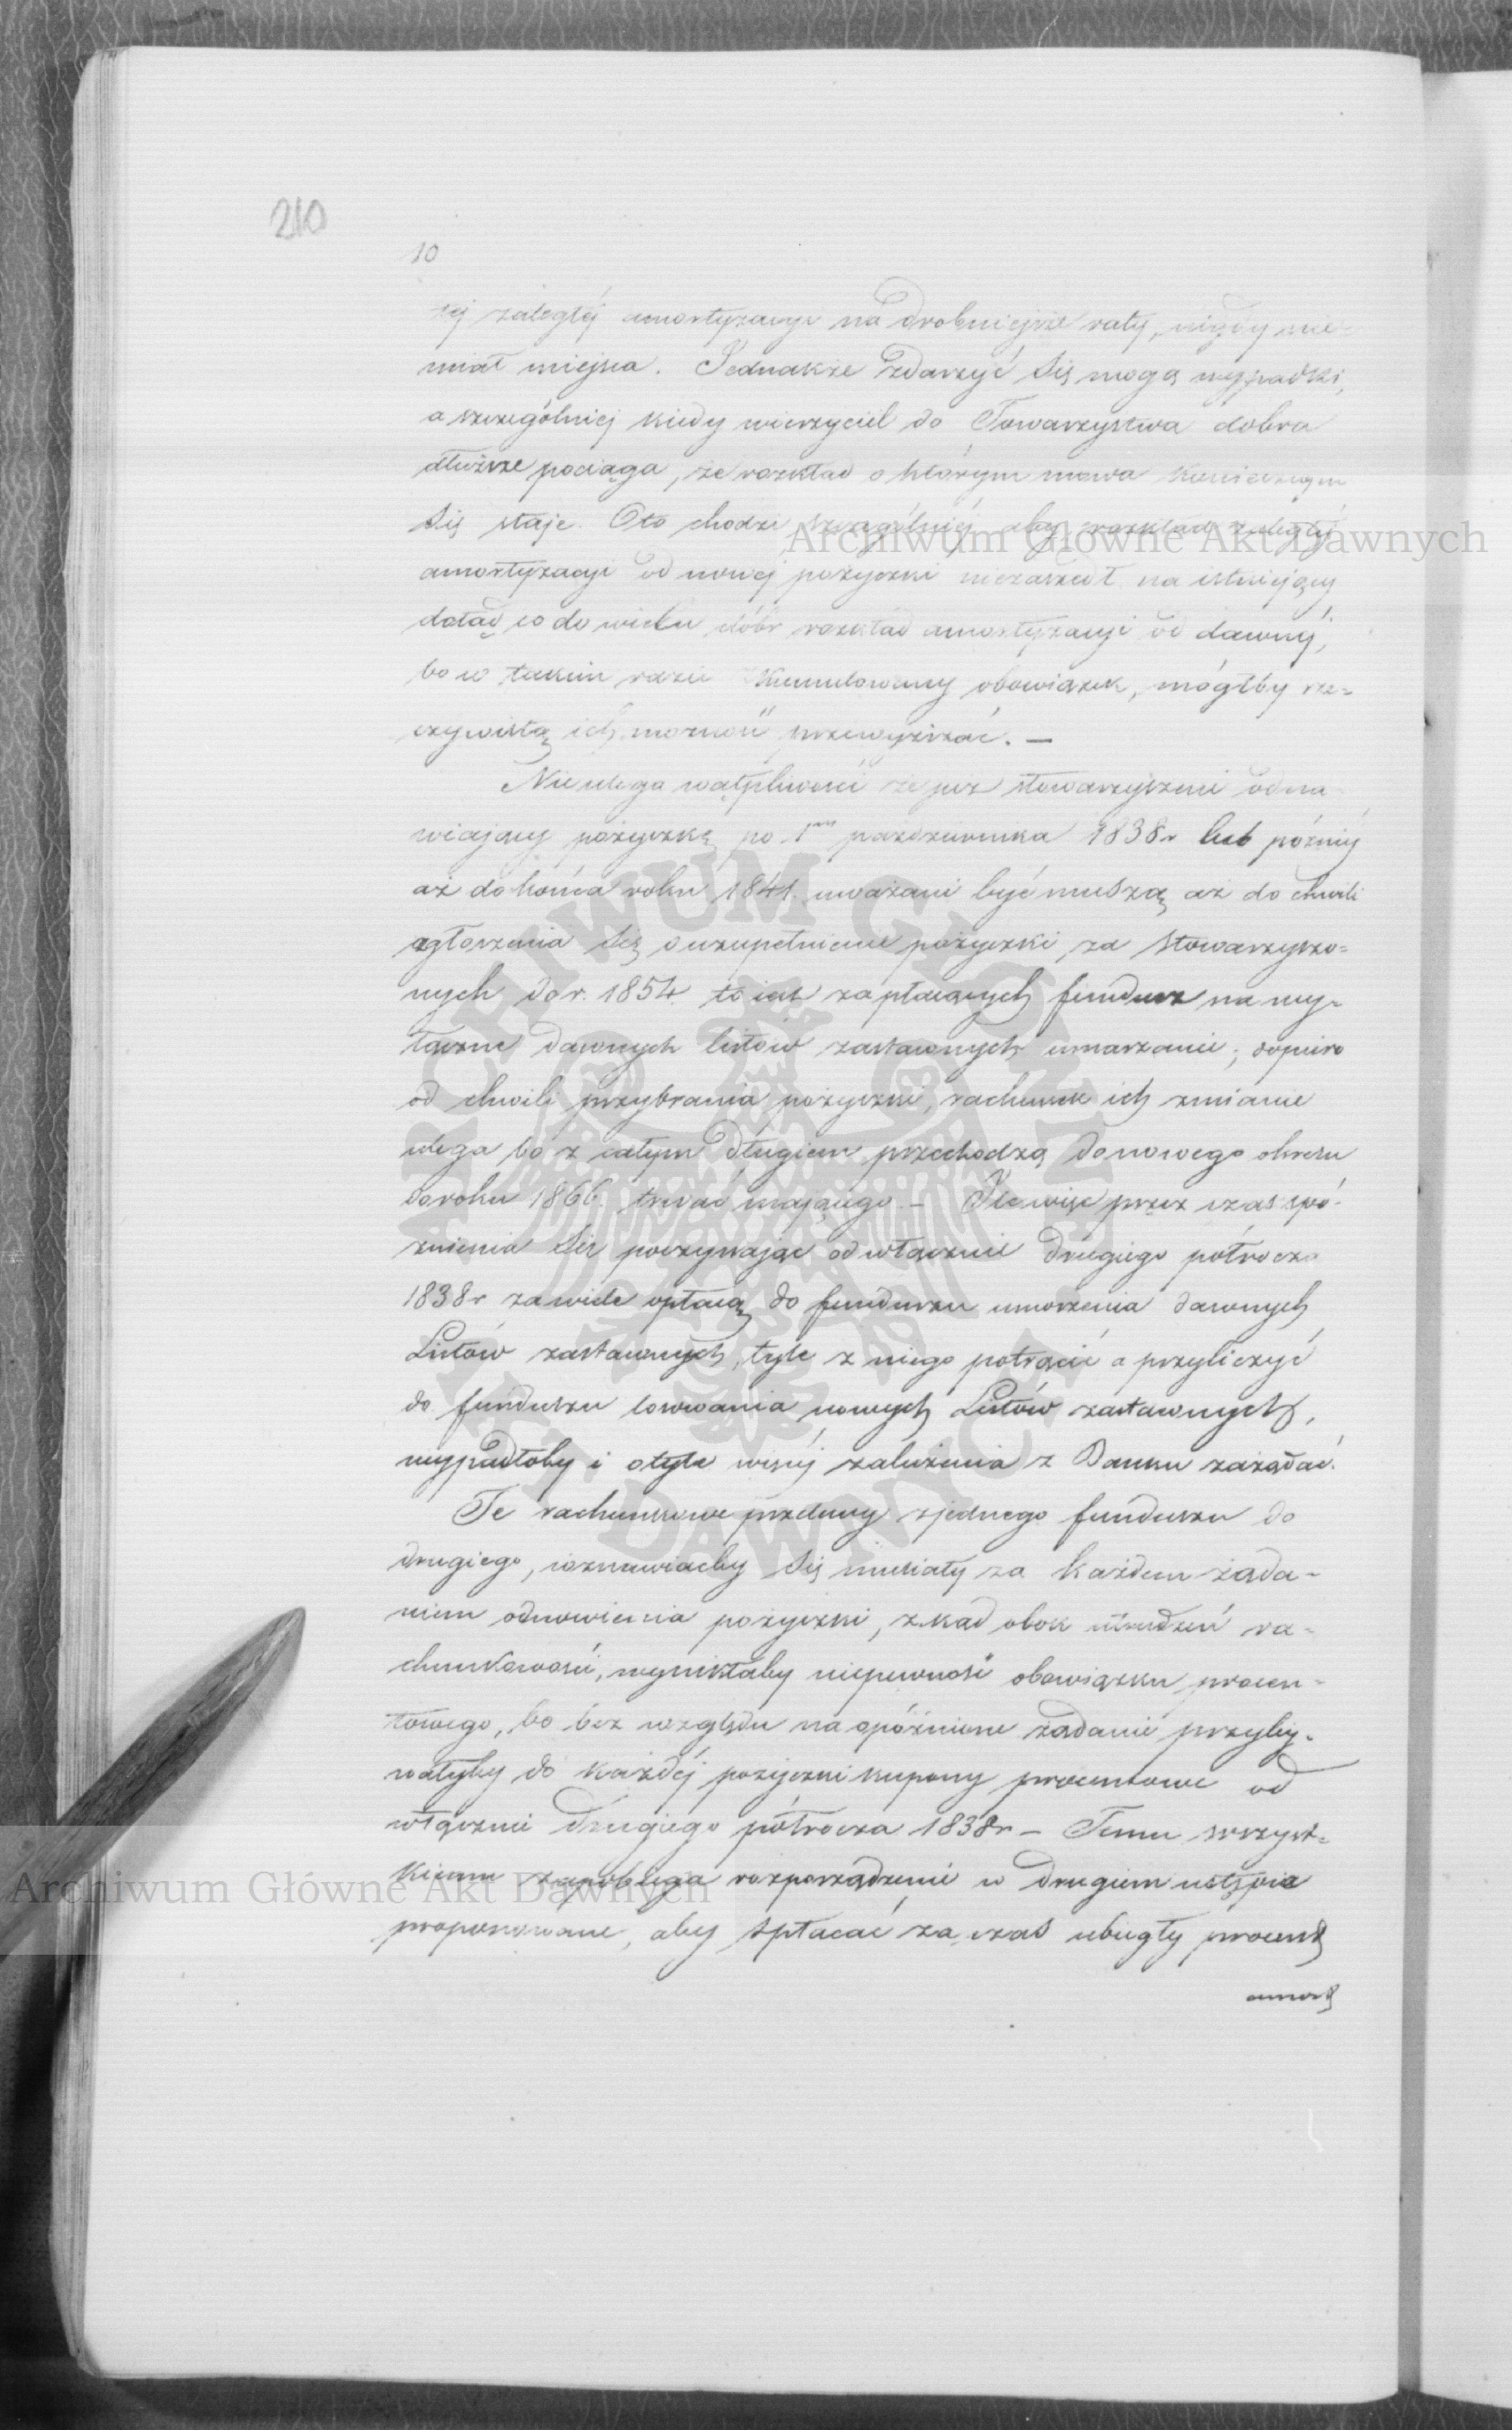 210
10
tej zaległéj amortyzacyi na drobniejsze raty, nigdy nie
miał miejsca. Jednakże zdarzyć się mogą wypadki,
a szczególniej kiedy wierzyciel do Towarzystwa dobra
dłuższe pociąga, że rozkład o którym mowa koniecznym
się staje. Oto chodzi szczególniéj aby rozkład zaległéj
amortyzacyi od nowej pożyczki niezaszedł na istniejący
dotąd co do wielu dóbr rozkład amortyzacyi od dawnéj,
bo w takim razie kumulowany obowiązek, mógłby rze-
czywistą ich możność przewyższać. —
Nieulega wątpliwości że stowarzyszeni odna-
wiający pożyczkę po 1ym października 1838r lub późniéj
aż do końca roku 1841. uważani być muszą aż do chwili
zgłoszenia się o uzupełnienie pożyczki, za stowarzyszo-
nych do r. 1854. to jest za płacących fundusz na wy-
łączne dawnych listów zastawnych umarzanie; dopiero
od chwili przybrania pożyczki, rachunek ich zmianie
ulega bo z całym długiem przechodzą do nowego okresu
do roku 1866. trwać mającego. — Ile więc przez czas spó-
źnienia się poczynając od włącznie drugiego półrocza
1838r za wiele opłacą do funduszu umorzenia dawnych
Listów zastawnych, tyle z niego potrącić a przyliczyć
do funduszu losowania nowych Listów zastawnych,
wypadłoby i o tyle więcéj zaliczenia z Banku zażądać.
Te rachunkowe przelewy z jednego funduszu do
drugiego, wznawiaćby się musiały za każdem żąda-
niem odnowienia pożyczki, zkąd obok utrudzeń ra-
chunkowości, wynikłaby niepewność obowiązku procen-
towego, bo bez względu na opóźnione żądanie przyby-
wałyby do każdéj pożyczki kupony procentowe od
włącznie drugiego półrocza 1838r — Temu wszyst-
kiemu zapobiega rozporządzenie w drugiem ustępie
proponowane, aby spłacać za czas ubiegły procent
amort
Archiwum Główne Akt Dawnych
Archiwum Główne Akt Dawnych
Archiwum Główne Akt Dawnych
ARCHIWUM GŁÓWNE
AKT DAWNYCH